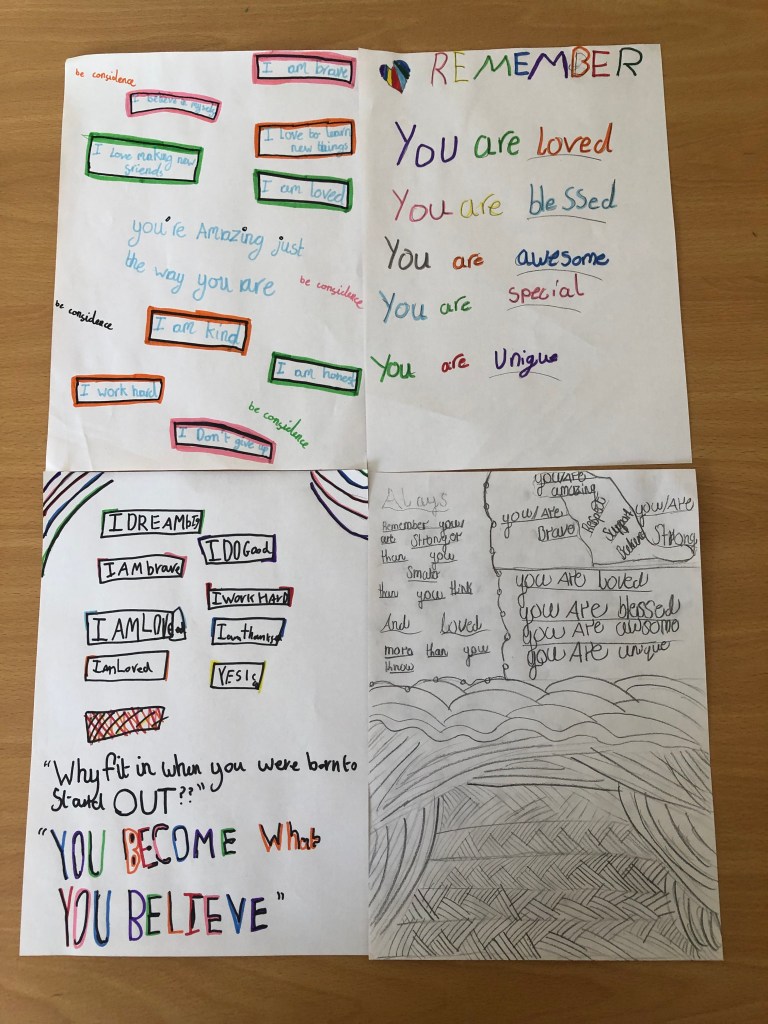 be considence
I am brave
I believe in myself
I love to learn
new things
I Love making new
sriends
I am loved
you're Amazing just
the way you are
be considence
be considence
I am kind
I am honest
I work hard
be considence
I Don't give up
REMEMBER
You are loved
You are blessed
You are awesome
You are special
You are Unique
I DREAM big
I DO Good
I AM brave
I WORK HARD
I AM LOVed
I am thankful
I am Loved
YES I
"Why fit in when you were born to
Stand OUT??"
"YOU BECOME What
YOU BELIEVE"
Alays
Remember your
are Stronger
than you
Smato
than you think
And Loved
more than you
know
you/Are
amazing
you/Are
Brave
Support
you/Are
Strong
you Are loved
you Are blessed
you Are awsome
you Are unique